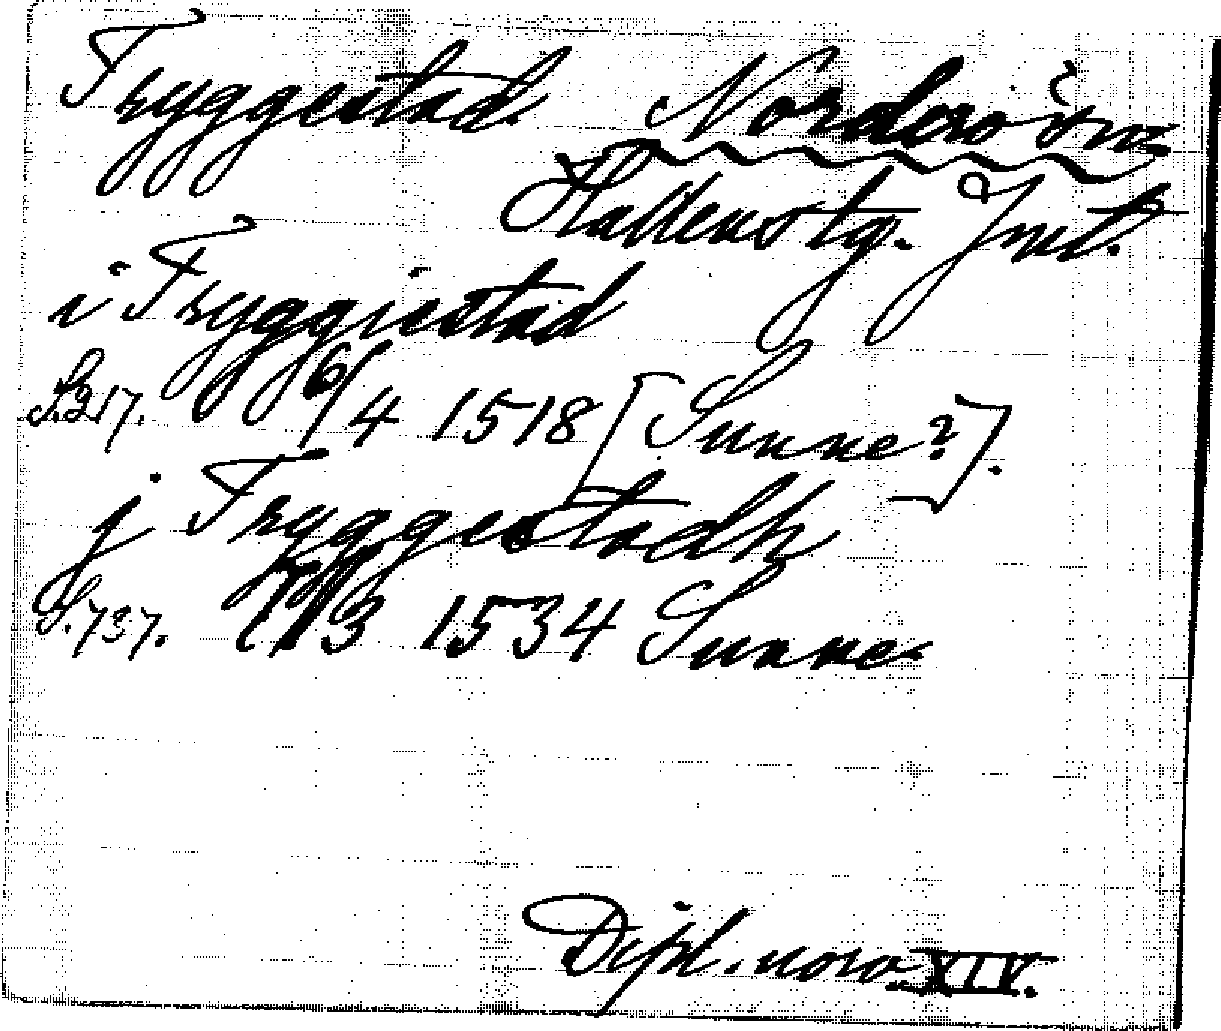 Tryggestad. Norderöns
Hallens tg. Jmtl.
i Tryggiestad
S. 217. 6/4 1518 [Sunne?].
j Tryggestadh
S. 737. 1/3 1534 Sunne
Dipl. norv. XIV.